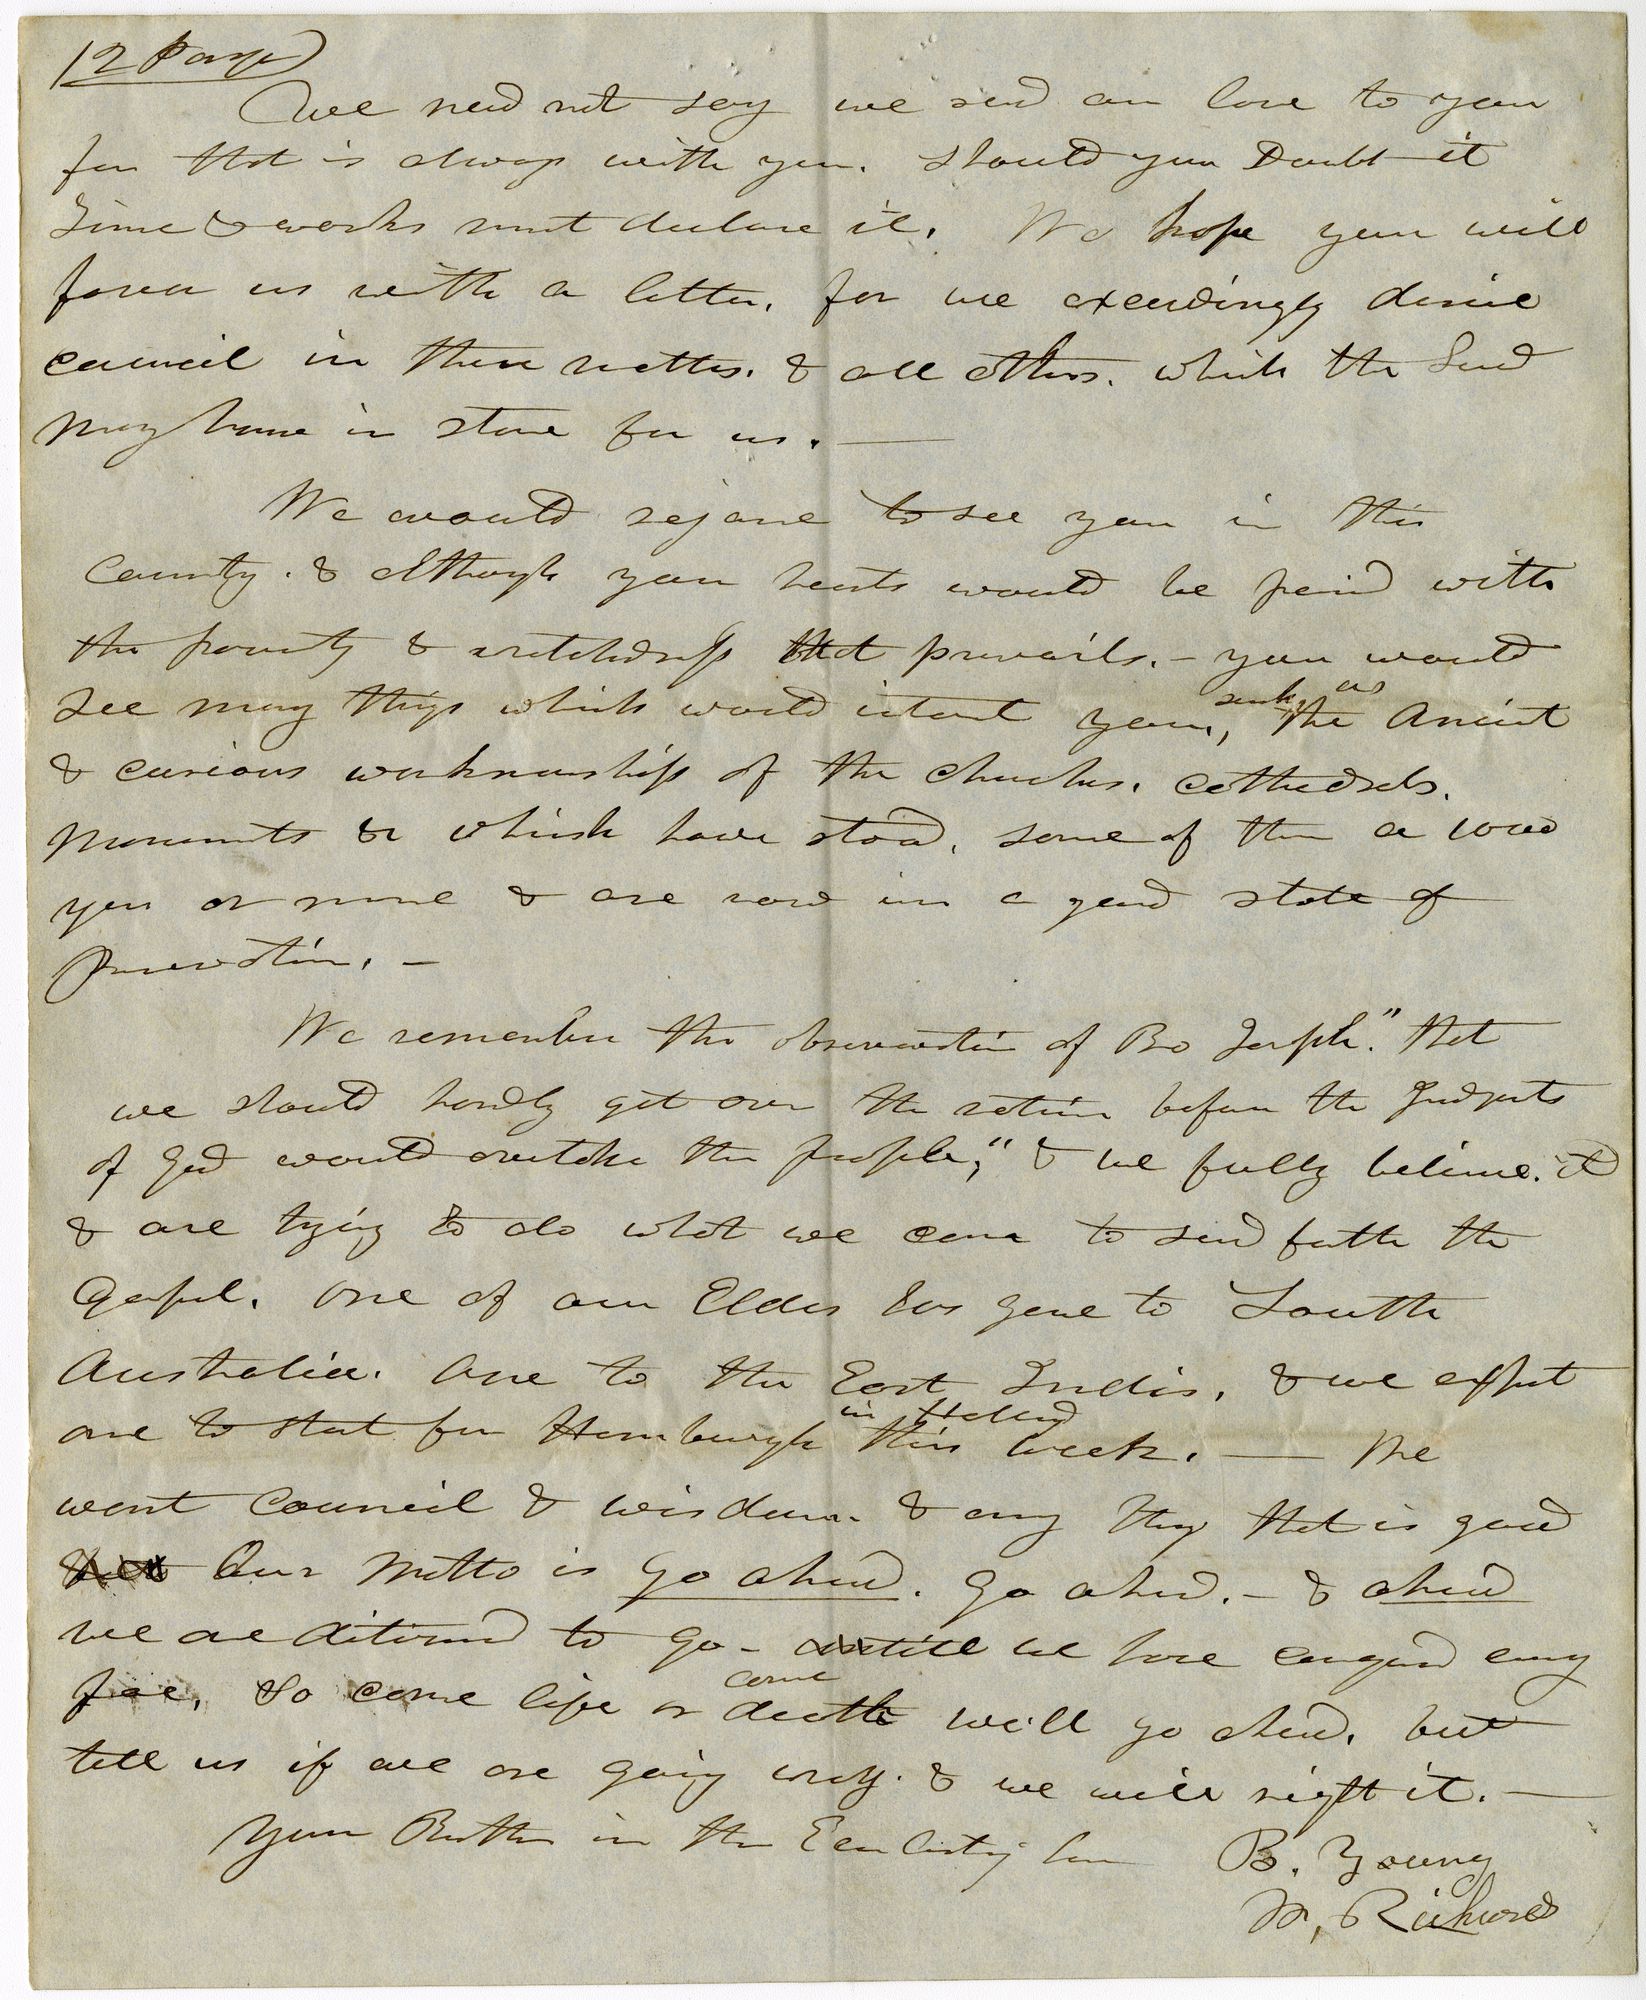 12 Page
We need not say we send our love to you
for that is always with you. Should you Doubt it
Time & works must declare it. We hope you will
favor us with a letter, for we exceedingly desire
council in these matters. & all others. which the Lord
may have in store for us. —
We would rejoice to see you in this
County. & although your hearts would be paind with
the poverty & wretchedness that prevails. – you would
see many things which would intrest you, such as the Ancient
& curious workmanship of the churches. cathedrals.
monuments &c which have stood, some of them a 1000
years or more & are now in a good state of
preservation. –
We remember the observation of Bro Joseph." that
we should hardly get over the nation before the Judgments
of God would overtake the people," & we fully believe it
& are trying to do what we can to send forth the
Gospel. One of our Elders has gone to South
Australia. One to the East Indies, & we expect
one to start for Hamburgh in Holland this week. — We
want Council & wisdom. & any thing that is good
Our Motto is go ahead. Go ahead. – & ahead
we are determined to go – till we have conquered every
foe, So come life or come death we'll go ahead, but
tell us if we are going wrong. & we will right it. —
Your Brethren in the Everlasting Cov B. Young
W. Richards